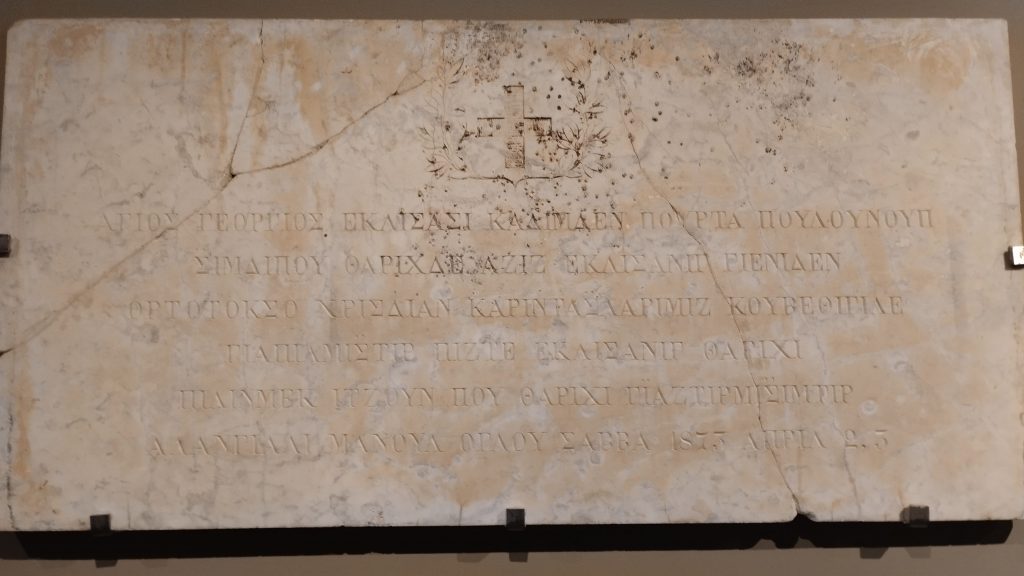 ΑΓΙΟΣ ΓΕΩΡΓΙΟΣ ΕΚΛΙΣΑΣΙ ΚΑΔΙΜΔΕΝ ΠΟΥΡΤΑ ΠΟΥΛΟΥΝΟΥΠ
ΣΙΜΔΙΠΟΥ ΘΑΡΙΧΔΕ ΑΖΙΖ ΕΚΛΙΣΑΝΙΓ ΓΙΕΝΙΔΕΝ
ΟΡΤΟΤΟΚΣΟ ΧΡΙΣΔΙΑΝ ΚΑΡΙΝΤΑΣΛΑΡΙΜΙΖ ΚΟΥΒΕΘΙΓΙΛΕ
ΓΙΑΠΙΛΜΙΣΤΙΡ ΠΙΖΤΕ ΕΚΛΙΣΑΝΙΓ ΘΑΡΙΧΙ
ΠΙΛΙΝΜΕΚ ΙΤΖΟΥΝ ΠΟΥ ΘΑΡΙΧΙ
ΜΑΝΟΥΛ ΟΓΛΟΥ ΣΑΒΒΑ 1873 ΑΠΡΙΛ 23